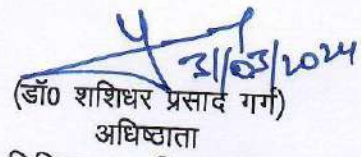 31/03/2024
(डॉ0 शशिधर प्रसाद गर्ग)
अधिष्ठाता